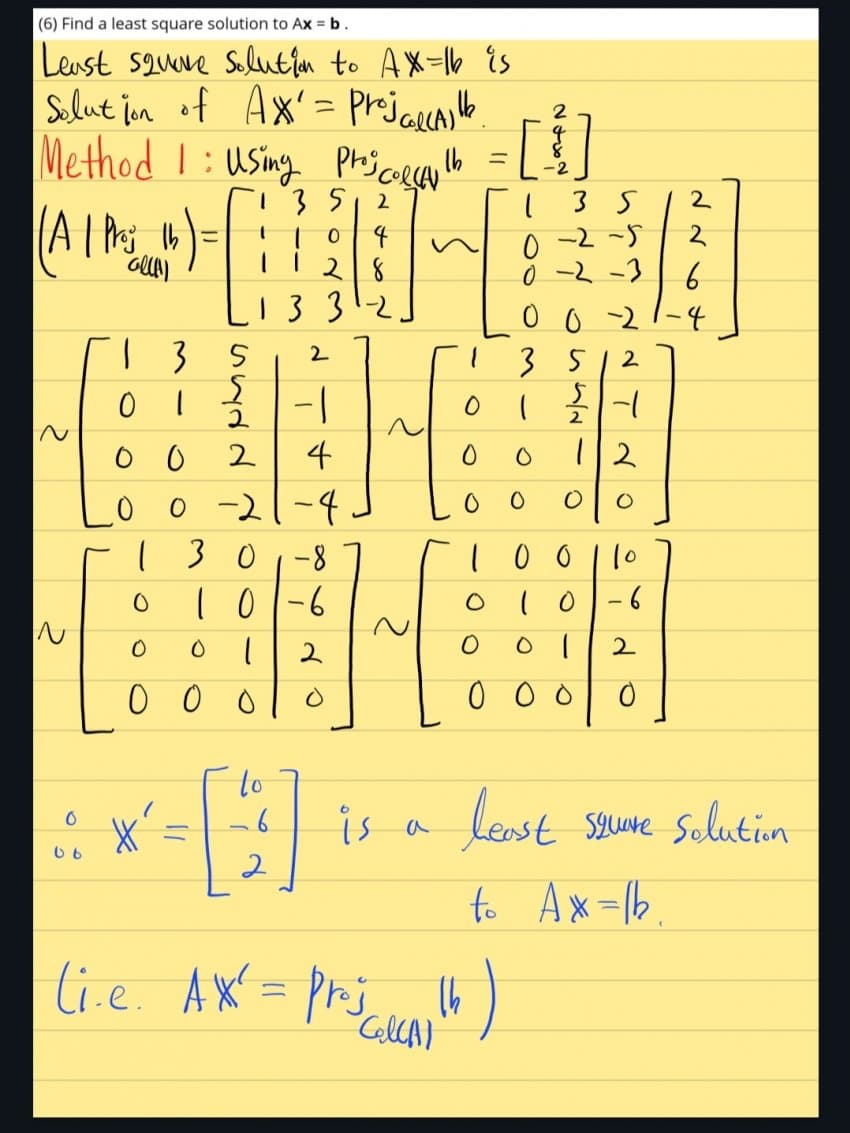 (6) Find a least square solution to Ax = b .
Least square Solution to A𝕩=𝕓 is
Solution of A𝕩' = Proj_Col(A) 𝕓.
Method 1 : Using Proj_Col(A) 𝕓 = [2 4 8 -2]
(A | Proj_Col(A) 𝕓) = [1 3 5 | 2; 1 1 0 | 4; 1 1 2 | 8; 1 3 3 | -2] ~ [1 3 5 | 2; 0 -2 -5 | 2; 0 -2 -3 | 6; 0 0 -2 | -4]
~ [1 3 5 | 2; 0 1 5/2 | -1; 0 0 2 | 4; 0 0 -2 | -4] ~ [1 3 5 | 2; 0 1 5/2 | -1; 0 0 1 | 2; 0 0 0 | 0]
~ [1 3 0 | -8; 0 1 0 | -6; 0 0 1 | 2; 0 0 0 | 0] ~ [1 0 0 | 10; 0 1 0 | -6; 0 0 1 | 2; 0 0 0 | 0]
∴ 𝕩' = [10 -6 2] is a least square solution
to A𝕩=𝕓.
(i.e. A𝕩' = Proj_Col(A) 𝕓)